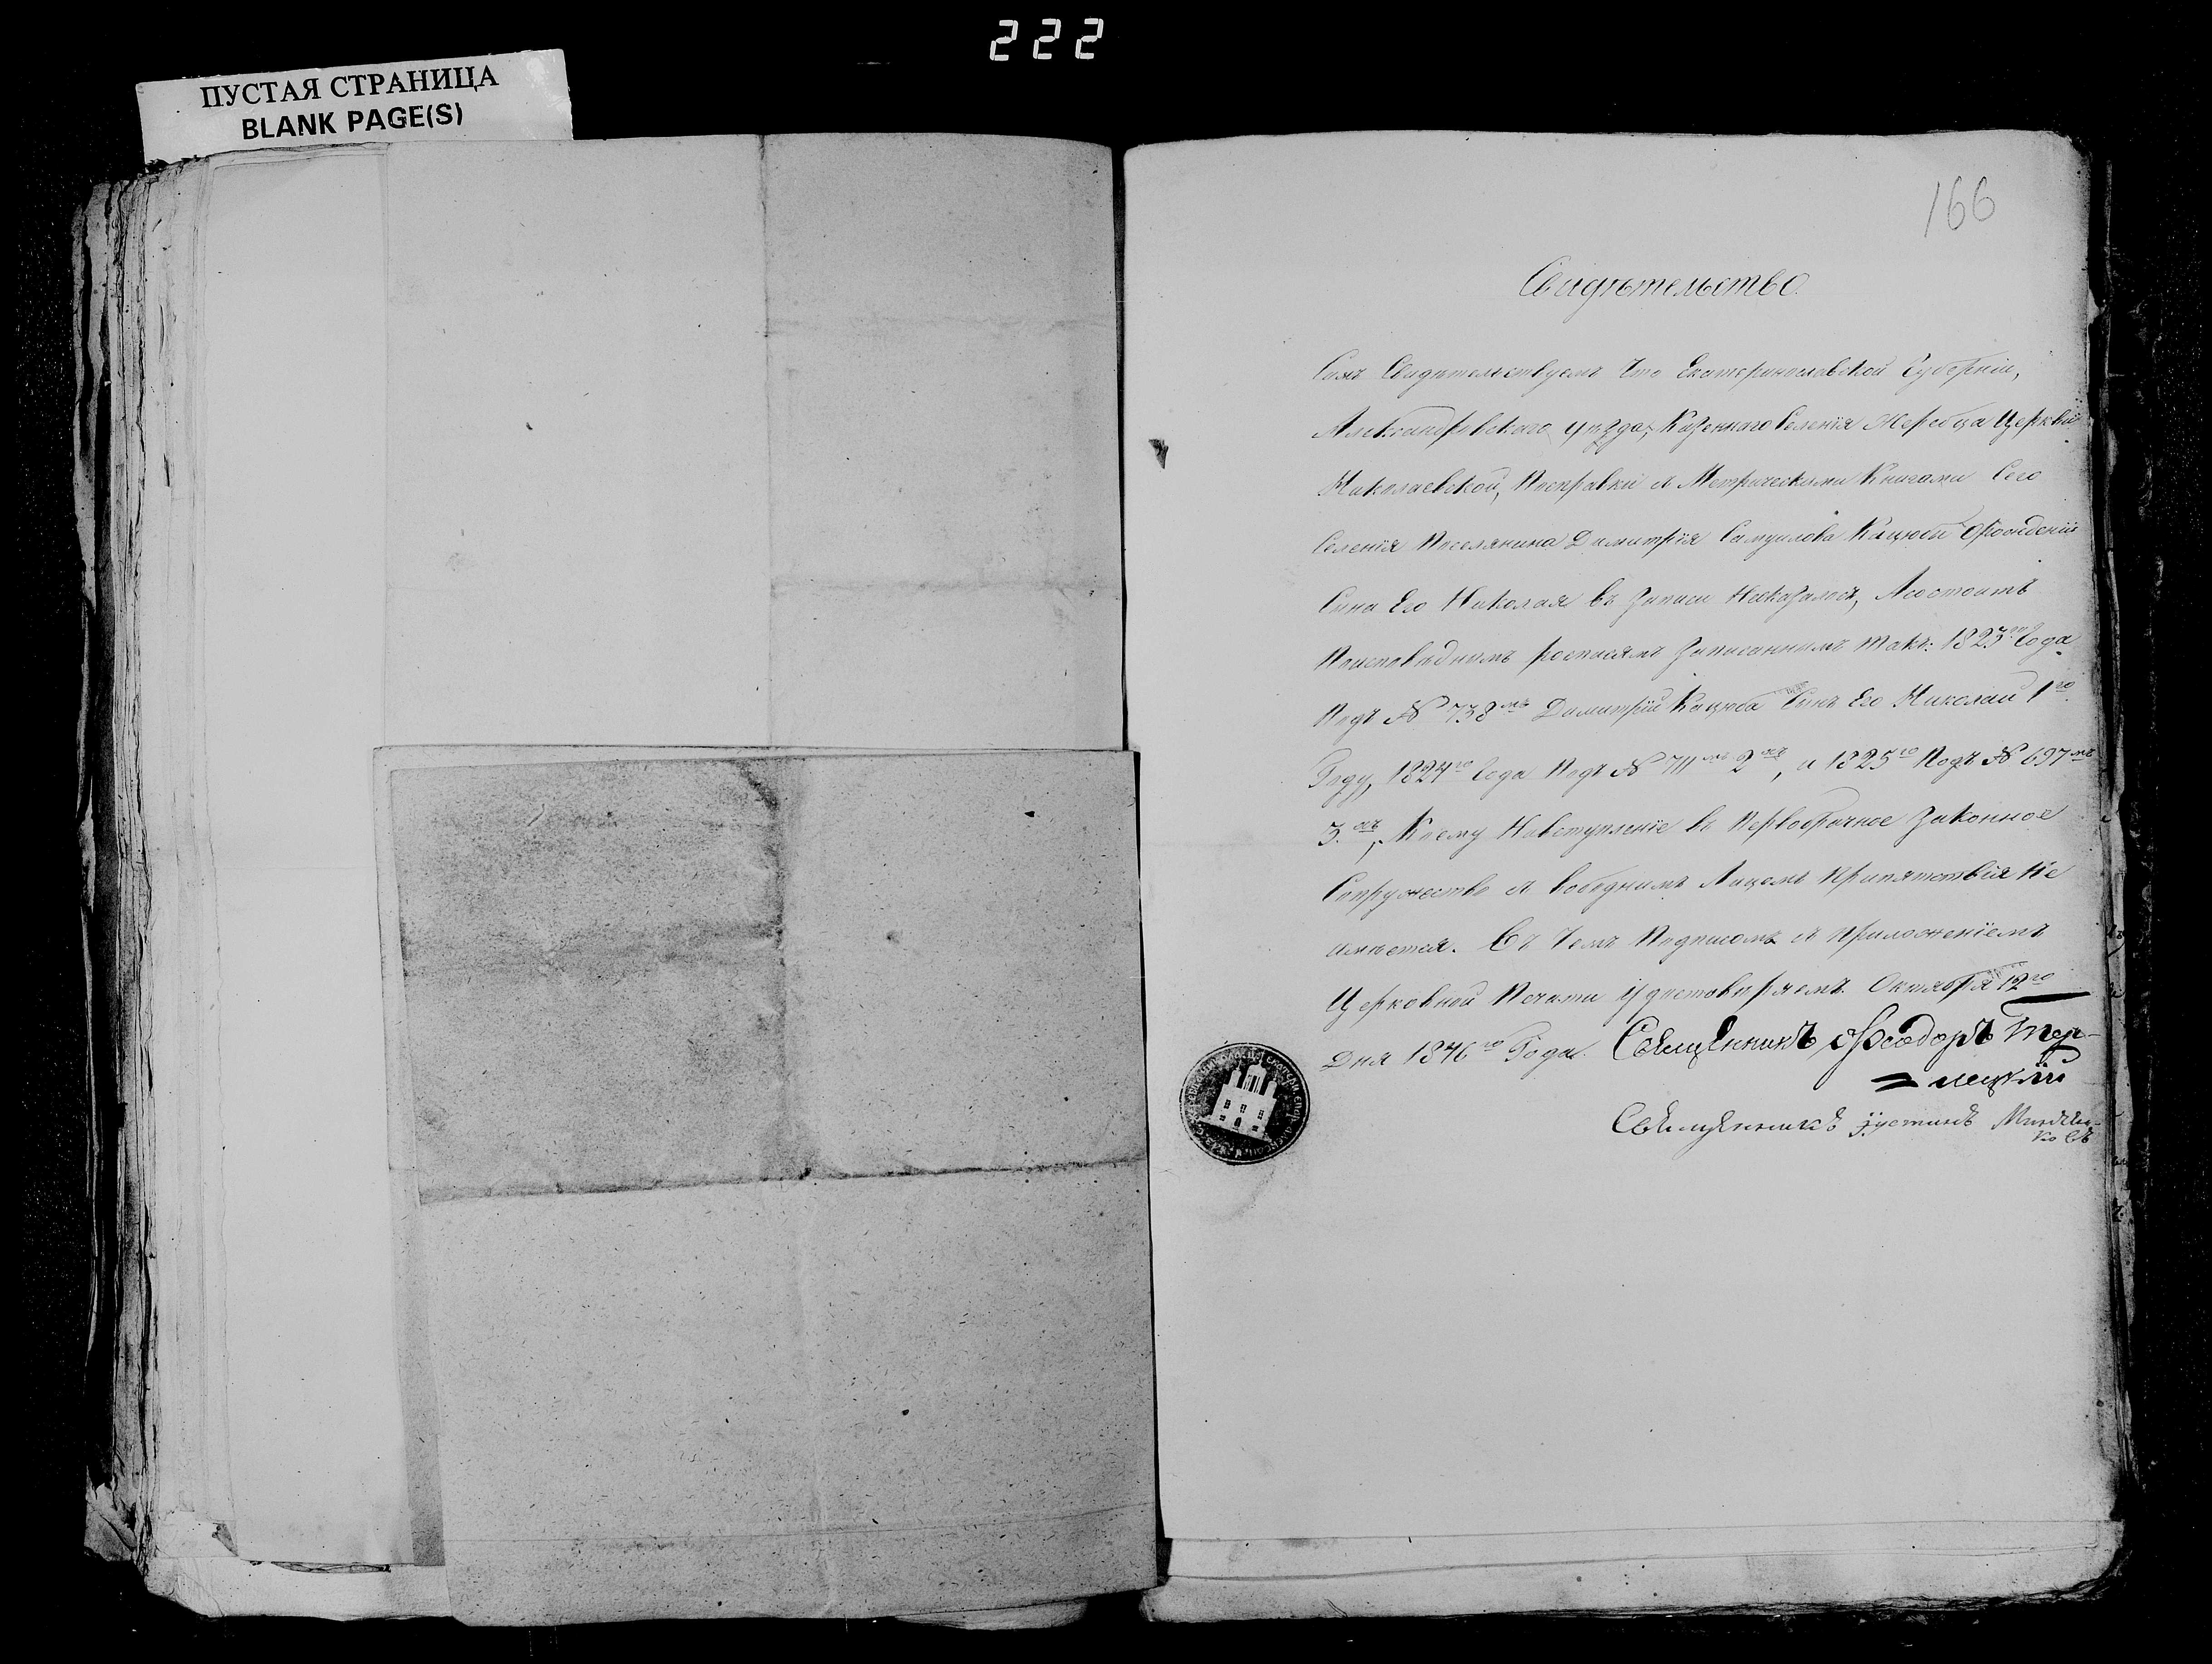 222
ПУСТАЯ СТРАНИЦА
BLANK PAGE(S)
166
Свидѣтельство.
Симъ Свидѣтельствуемъ что Екатеринославской Губерніи,
Александровскаго уѣзда, Казеннаго Селенія Жеребца Церкви
Николаевской, Посправки съ Метрическими Книгами Сего
Селенія Поселянина Димитрія Самуилова Кацюбы Орожденіи
Сына Его Николая въ Записи Неказалось, Асостоитъ
Поисповѣднымъ росписямъ Записаннымъ такъ: 1823го Года
Подъ № 738мъ Димитрій Кацюба Сынъ Его Николай 1го
Году, 1824го Года Подъ № 711мъ 2хъ, и 1825го Подъ № 697мъ
3.хъ, Коему Навступленіе въ Первобрачное Законное
Супружество съ Свободнымъ Лицемъ Препятствія Не
имѣется. Въ Чемъ Подписомъ съ Приложеніемъ
Церковной Печати Удостовѣряемъ. Октября 12го
Дня 1846го Года. Священникъ Ѳеодоръ Тер-
лецкій
Священникъ Іустинъ